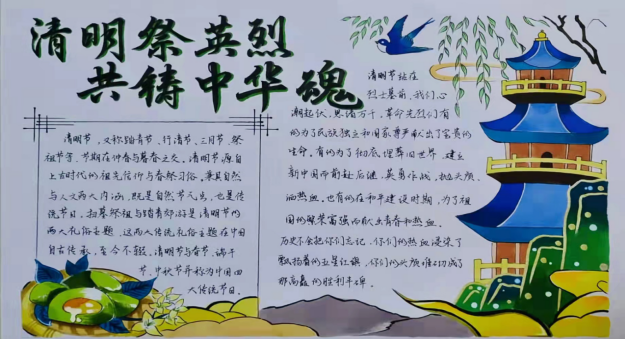 清明祭英烈
共铸中华魂
清明节，又称踏青节、行清节、三月节、祭
祖节等，节期在仲春与暮春之交。清明节源自
上古时代的祖先信仰与春祭习俗，兼具自然
与人文两大内涵，既是自然节气点，也是传
统节日，扫墓祭祖与踏青郊游是清明节的
两大礼俗主题，这两大传统礼俗主题在中国
自古传承，至今不辍。清明节与春节、端午
节、中秋节并称为中国四
大传统节日。
清明节站在
烈士墓前，我们心
潮起伏，思绪万千，革命先烈们有
的为了民族独立和国家尊严献出了宝贵的
生命，有的为了彻底埋葬旧世界，建立
新中国而前赴后继，英勇作战，抛头颅，
洒热血，也有的在和平建设时期，为了祖
国的繁荣富强而献出青春和热血，
历史不会把你们忘记，你们的热血浸染了
飘扬着的五星红旗，你们的头颅堆砌成了
那高矗的胜利丰碑。